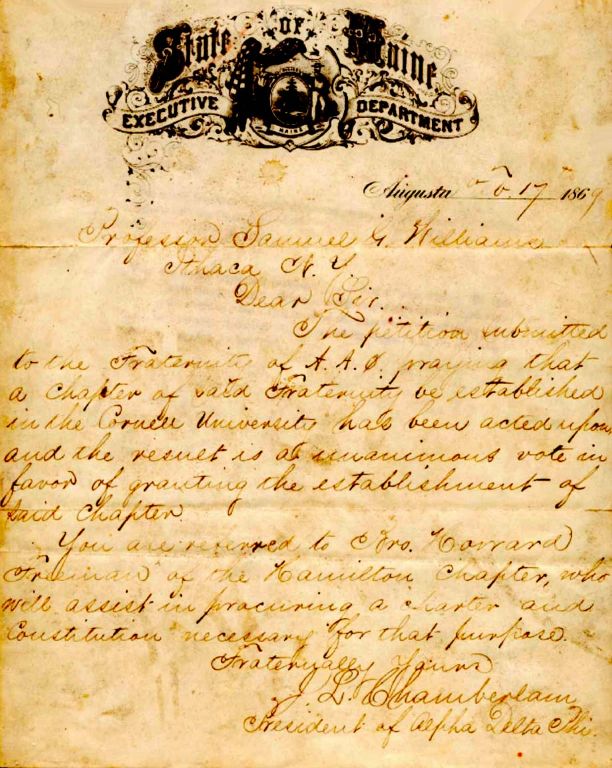 State OF Maine
EXECUTIVE DEPARTMENT
MAINE
Augusta 17 1869
Professor Samuel G. Williams
Ithaca N. Y.
Dear Sir.
The petition submitted
to the Fraternity of A. A. Φ. praying that
a chapter of said Fraternity be established
in the Cornell University has been acted upon,
and the result is a unanimous vote in
favor of granting the establishment of
said chapter.
You are referred to Bro. Howard
Freeman of the Hamilton Chapter, who
will assist in procuring a charter and
Constitution necessary for that purpose.
Fraternally Yours
J. L. Chamberlain
President of Alpha Delta Phi.